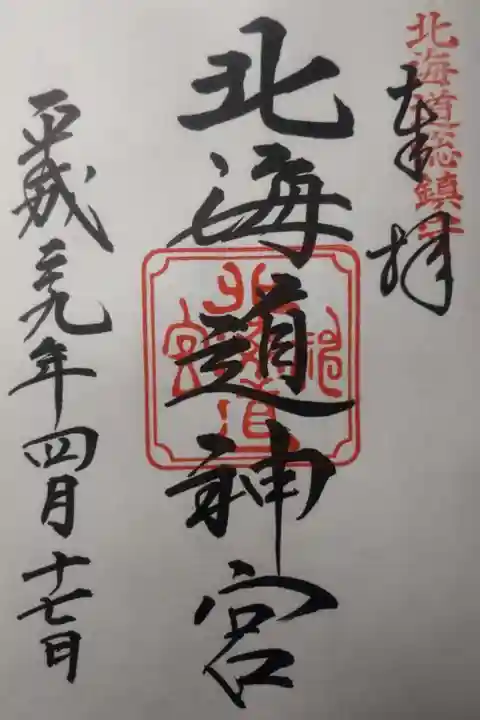 北海道総鎮守
奉拝
北海道神宮
北海道神宮
平成二九年四月十七日